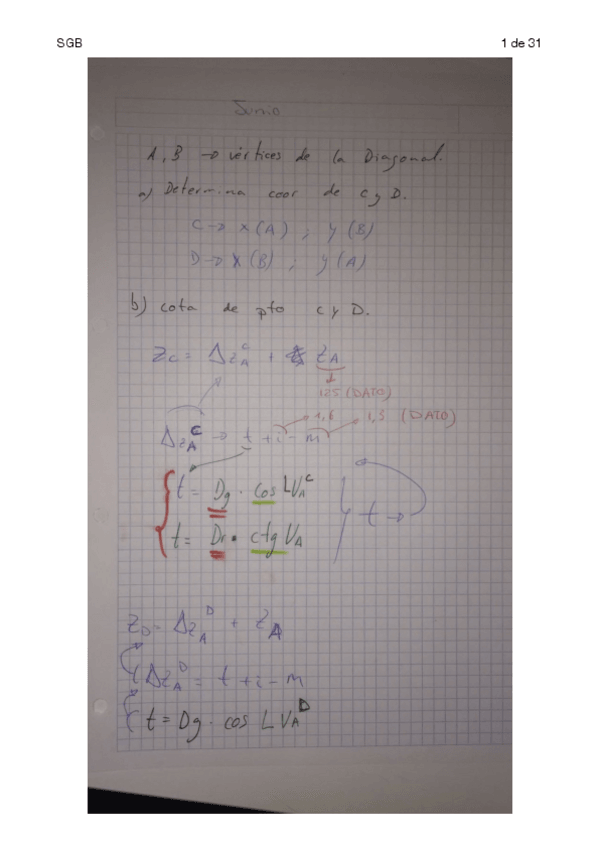 SGB 1 de 31
Junio
A, B → vértices de la Diagonal.
a) Determina coor de C y D.
C → x (A) ; y (B)
D → x (B) ; y (A)
b) cota de pto C y D.
Zc = ΔZ_A^C + Z_A
125 (DATO)
1,6 1,5 (DATO)
ΔZ_A^C → t + i - m
t = Dg · cos LV_A^C
t →
t = Dr · ctg V_A
Z_D = ΔZ_A^D + Z_A
ΔZ_A^D = t + i - m
t = Dg · cos LV_A^D